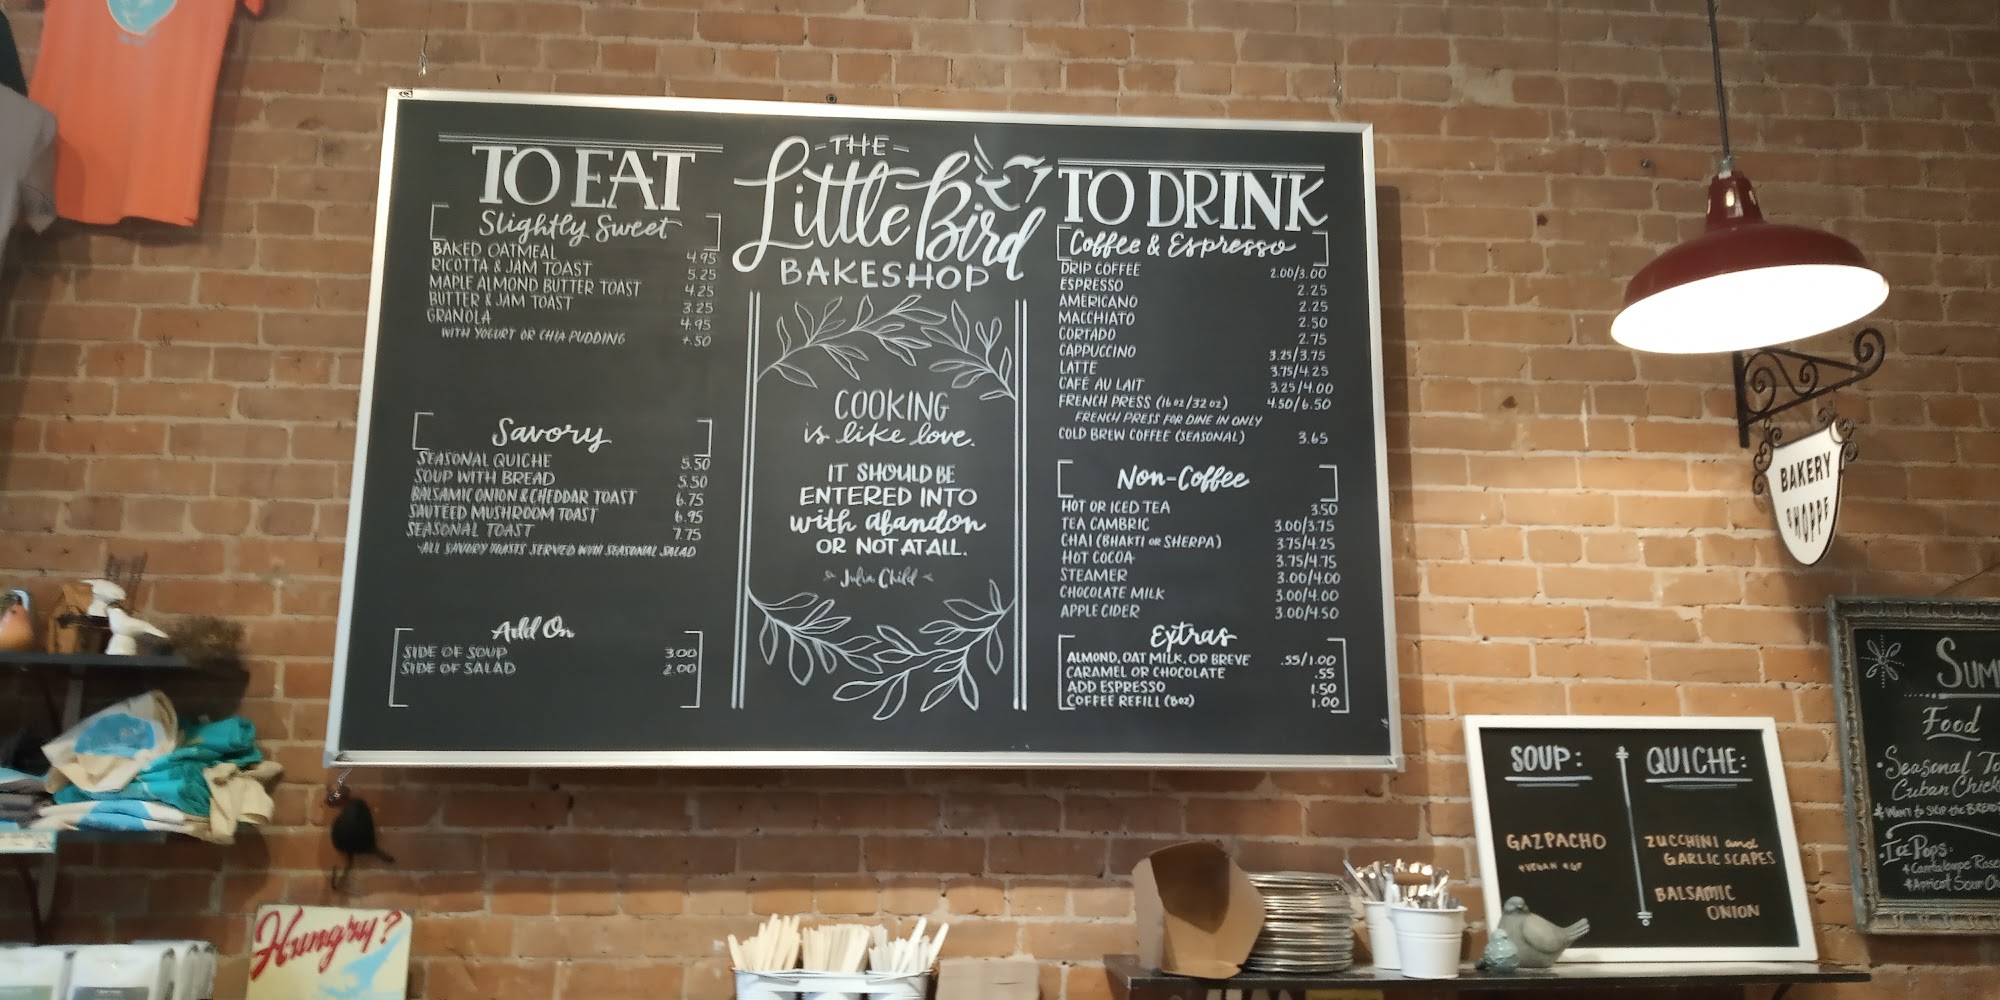 TO EAT
Slightly Sweet
BAKED OATMEAL 4.95
RICOTTA & JAM TOAST 5.25
MAPLE ALMOND BUTTER TOAST 4.25
BUTTER & JAM TOAST 3.25
GRANOLA 4.95
WITH YOGURT OR CHIA PUDDING +.50
Savory
SEASONAL QUICHE 5.50
SOUP WITH BREAD 5.50
BALSAMIC ONION & CHEDDAR TOAST 6.75
SAUTEED MUSHROOM TOAST 6.95
SEASONAL TOAST 7.75
-ALL SAVORY TOASTS SERVED WITH SEASONAL SALAD
Add On
SIDE OF SOUP 3.00
SIDE OF SALAD 2.00
-THE-
Little Bird
BAKESHOP
COOKING
is like love.
IT SHOULD BE
ENTERED INTO
with abandon
OR NOT AT ALL.
Julia Child
TO DRINK
Coffee & Espresso
DRIP COFFEE 2.00/3.00
ESPRESSO 2.25
AMERICANO 2.25
MACCHIATO 2.50
CORTADO 2.75
CAPPUCCINO 3.25/3.75
LATTE 3.75/4.25
CAFÉ AU LAIT 3.25/4.00
FRENCH PRESS (16 oz/32 oz) 4.50/6.50
FRENCH PRESS FOR DINE IN ONLY
COLD BREW COFFEE (SEASONAL) 3.65
Non-Coffee
HOT OR ICED TEA 3.50
TEA CAMBRIC 3.00/3.75
CHAI (BHAKTI OR SHERPA) 3.75/4.25
HOT COCOA 3.75/4.75
STEAMER 3.00/4.00
CHOCOLATE MILK 3.00/4.00
APPLE CIDER 3.00/4.50
Extras
ALMOND, OAT MILK, OR BREVE .55/1.00
CARAMEL OR CHOCOLATE .55
ADD ESPRESSO 1.50
COFFEE REFILL 1.00
BAKERY
SHOPPE
SOUP:
GAZPACHO
QUICHE:
ZUCCHINI and
GARLIC SCAPES
BALSAMIC
ONION
Food
Seasonal
Cuban
WANT to SKIP the BREAD
Ice Pops:
Cantaloupe Rose
Apricot Sour
Hungry?